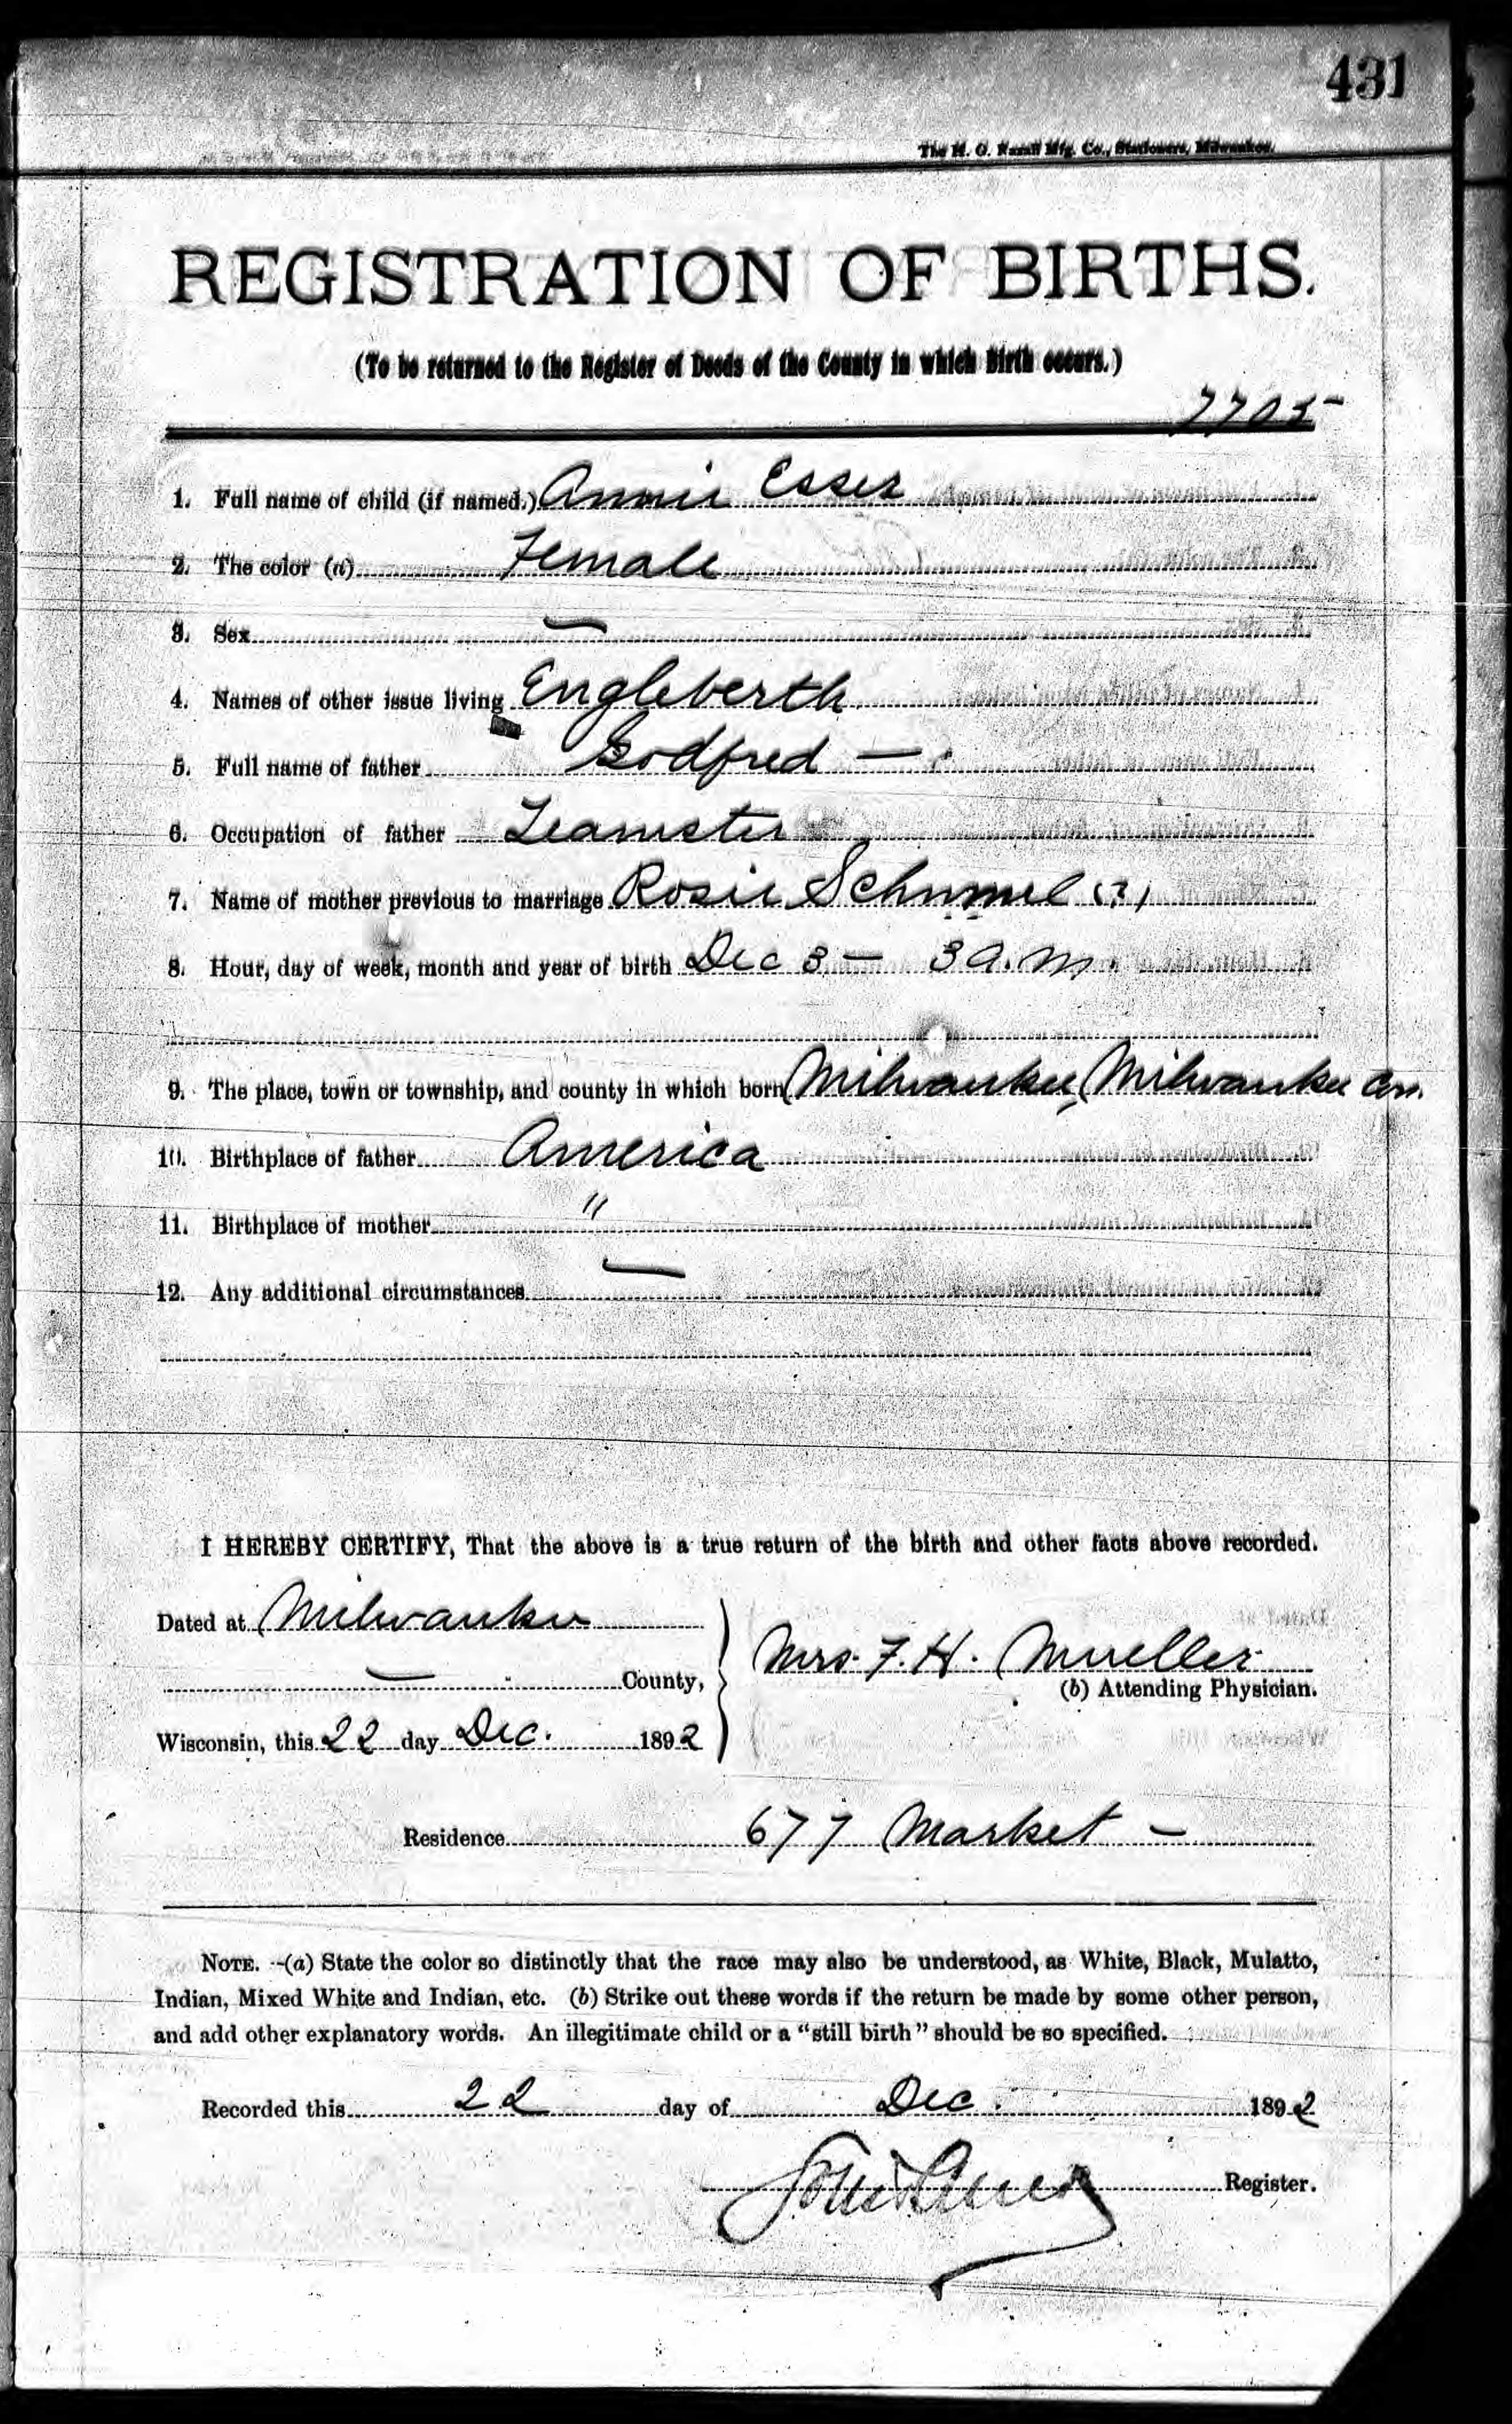 431
The H. G. Razall Mfg. Co., Stationers, Milwaukee.
REGISTRATION OF BIRTHS.
(To be returned to the Register of Deeds of the County in which Birth occurs.)
7705
1. Full name of child (if named.) Annie Esser
2. The color (a) Female
3. Sex —
4. Names of other issue living Engleberth
5. Full name of father Godfred —
6. Occupation of father Teamster
7. Name of mother previous to marriage Rosie Schimmel (?)
8. Hour, day of week, month and year of birth Dec 3 — 3 a.m.
9. The place, town or township, and county in which born Milwaukee, Milwaukee
10. Birthplace of father America
11. Birthplace of mother "
12. Any additional circumstances —
I HEREBY CERTIFY, That the above is a true return of the birth and other facts above recorded.
Dated at Milwaukee
— County,
Wisconsin, this 22 day Dec. 1892
Mrs. F. H. Mueller
(b) Attending Physician.
Residence 677 Market —
NOTE.—(a) State the color so distinctly that the race may also be understood, as White, Black, Mulatto,
Indian, Mixed White and Indian, etc. (b) Strike out these words if the return be made by some other person,
and add other explanatory words. An illegitimate child or a "still birth" should be so specified.
Recorded this 22 day of Dec. 1892
Register.